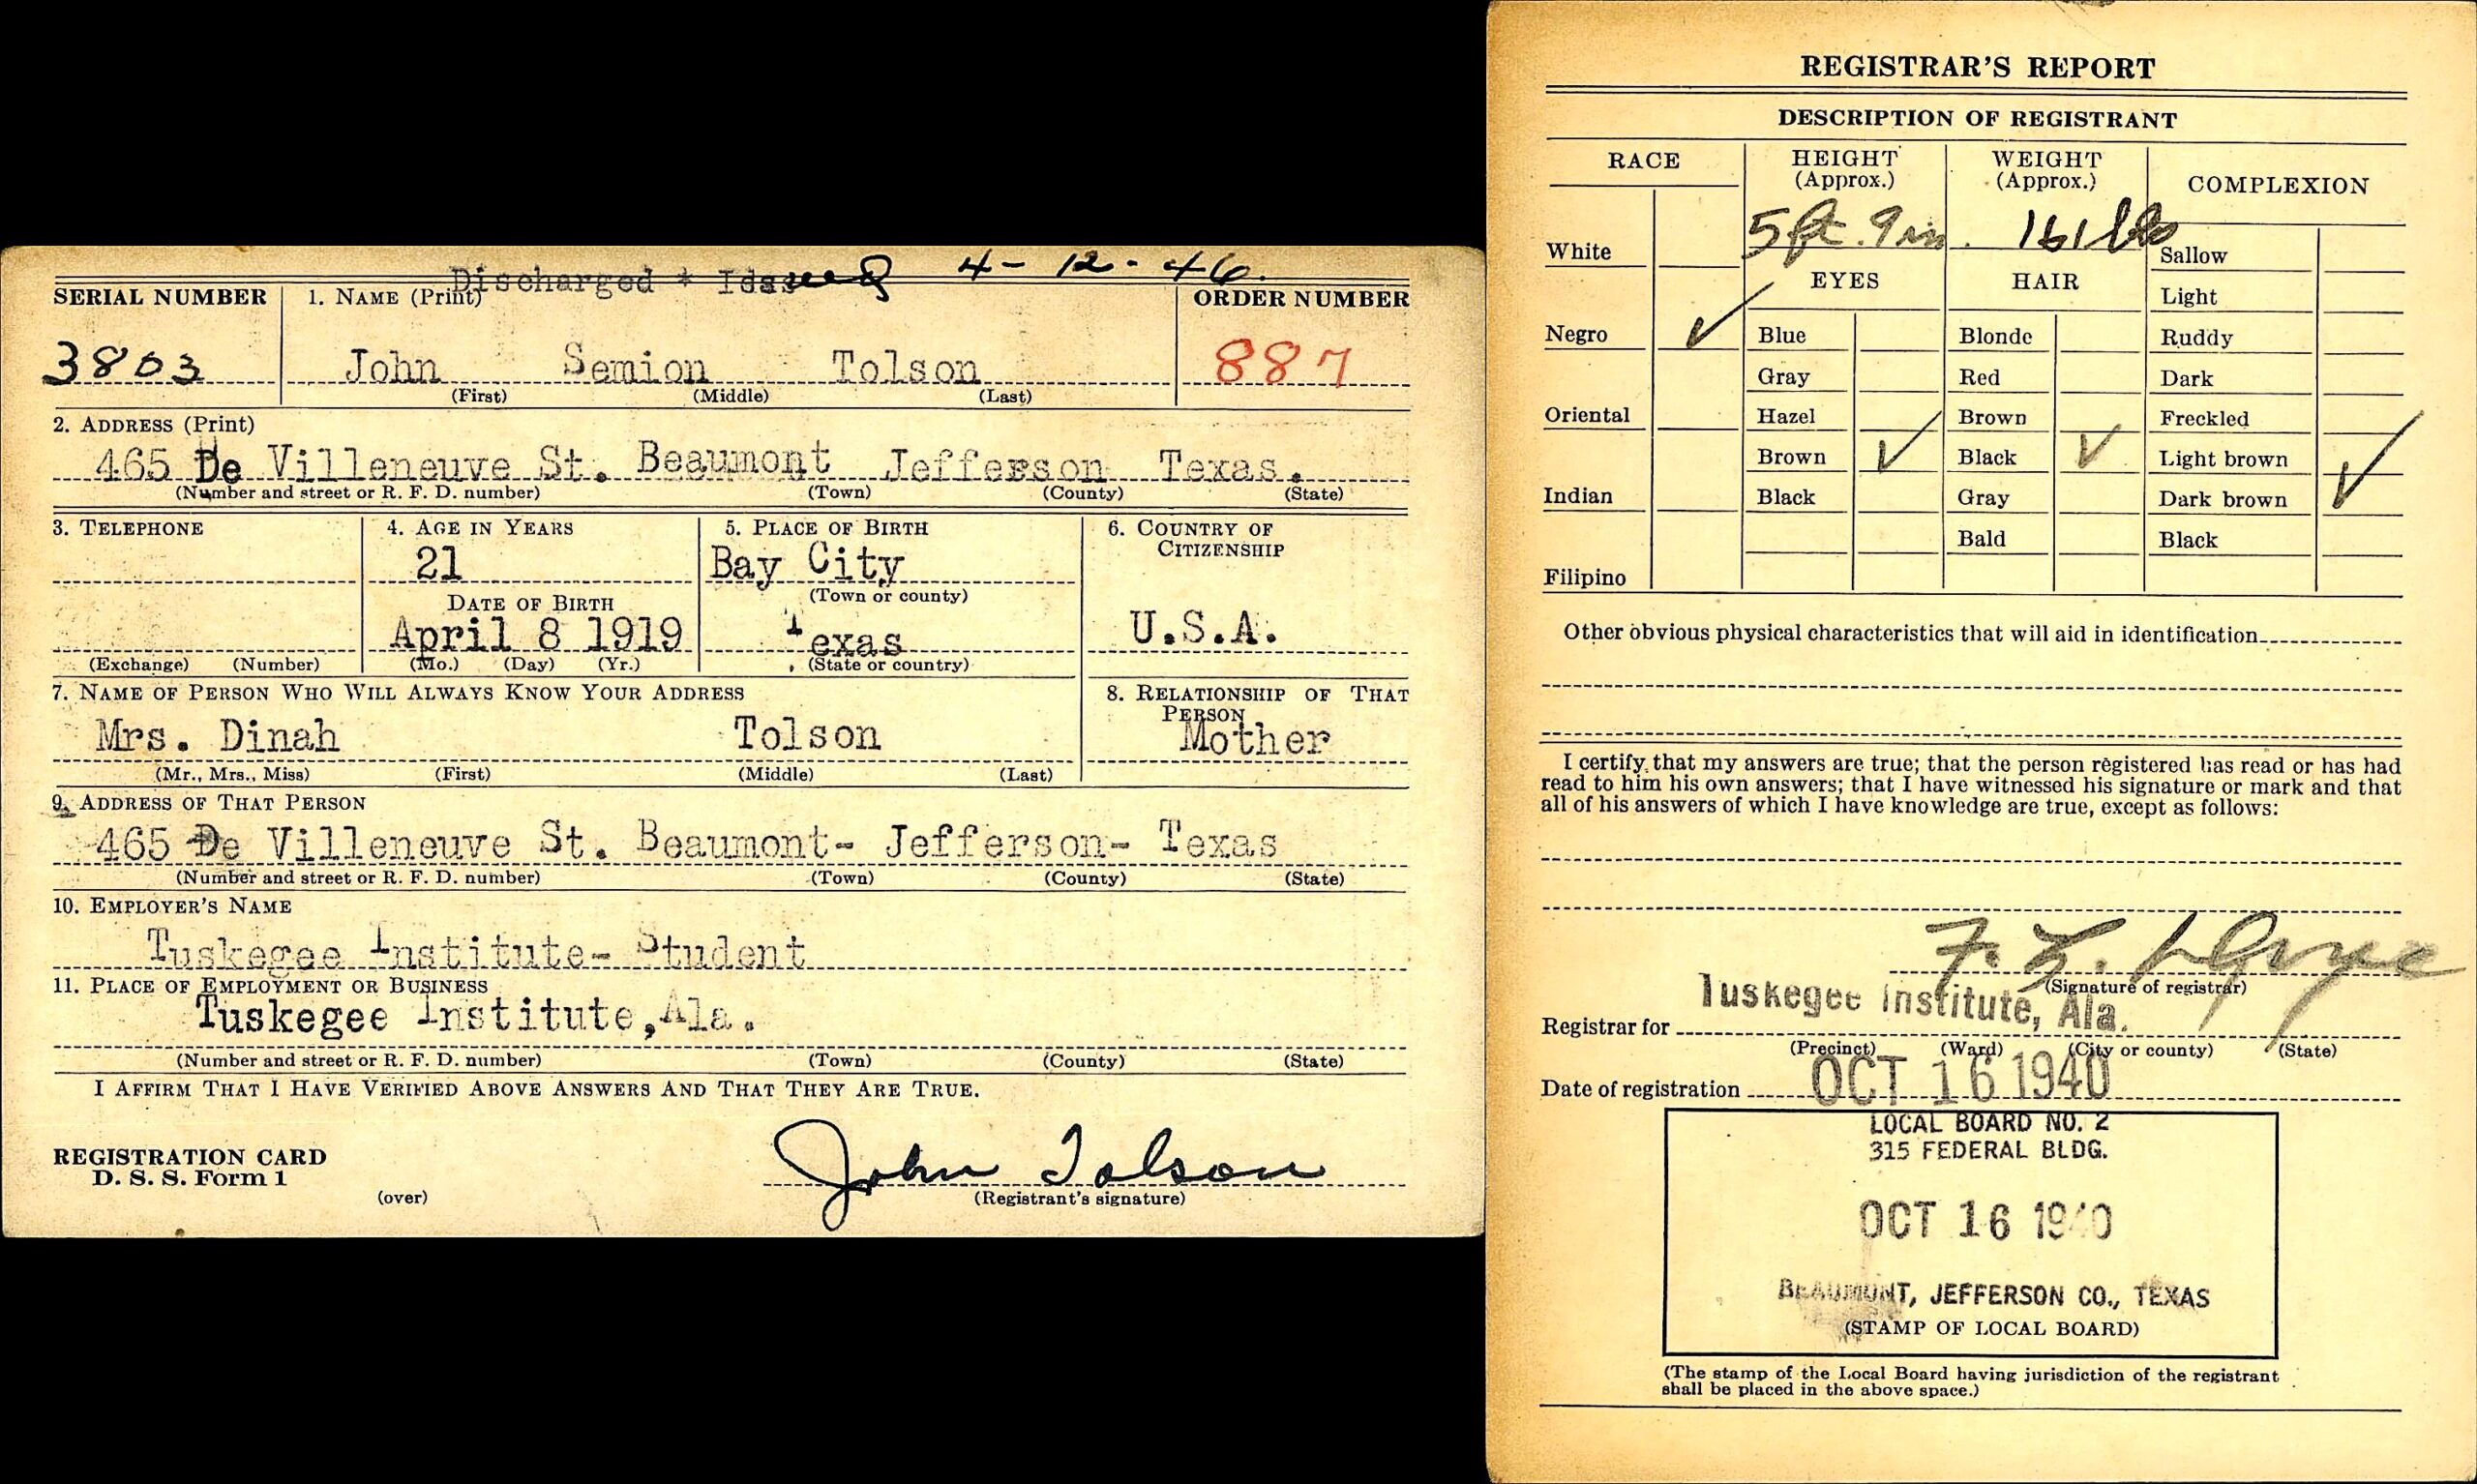 Discharged * Issued 4-12-46.
SERIAL NUMBER 1. NAME (Print) ORDER NUMBER
3803 John Semion Tolson 887
(First) (Middle) (Last)
2. ADDRESS (Print)
465 De Villeneuve St. Beaumont Jefferson Texas.
(Number and street or R. F. D. number) (Town) (County) (State)
3. TELEPHONE 4. AGE IN YEARS 5. PLACE OF BIRTH 6. COUNTRY OF CITIZENSHIP
21 Bay City
(Town or county)
DATE OF BIRTH
April 8 1919 Texas U.S.A.
(Exchange) (Number) (Mo.) (Day) (Yr.) (State or country)
7. NAME OF PERSON WHO WILL ALWAYS KNOW YOUR ADDRESS 8. RELATIONSHIP OF THAT PERSON
Mrs. Dinah Tolson Mother
(Mr., Mrs., Miss) (First) (Middle) (Last)
9. ADDRESS OF THAT PERSON
465 De Villeneuve St. Beaumont- Jefferson- Texas
(Number and street or R. F. D. number) (Town) (County) (State)
10. EMPLOYER'S NAME
Tuskegee Institute- Student
11. PLACE OF EMPLOYMENT OR BUSINESS
Tuskegee Institute, Ala.
(Number and street or R. F. D. number) (Town) (County) (State)
I AFFIRM THAT I HAVE VERIFIED ABOVE ANSWERS AND THAT THEY ARE TRUE.
REGISTRATION CARD
D. S. S. Form 1
(over)
John Tolson
(Registrant's signature)
REGISTRAR'S REPORT
DESCRIPTION OF REGISTRANT
RACE HEIGHT (Approx.) WEIGHT (Approx.) COMPLEXION
5 ft. 9 in. 161 lbs
White Sallow
EYES HAIR
Light
Negro ✓ Blue Blonde Ruddy
Gray Red Dark
Oriental Hazel Brown Freckled
Brown ✓ Black ✓ Light brown
Indian Black Gray Dark brown ✓
Bald Black
Filipino
Other obvious physical characteristics that will aid in identification
I certify that my answers are true; that the person registered has read or has had
read to him his own answers; that I have witnessed his signature or mark and that
all of his answers of which I have knowledge are true, except as follows:
(Signature of registrar)
Tuskegee Institute, Ala.
Registrar for
(Precinct) (Ward) (City or county) (State)
Date of registration OCT 16 1940
LOCAL BOARD NO. 2
315 FEDERAL BLDG.
OCT 16 1940
BEAUMONT, JEFFERSON CO., TEXAS
(STAMP OF LOCAL BOARD)
(The stamp of the Local Board having jurisdiction of the registrant
shall be placed in the above space.)